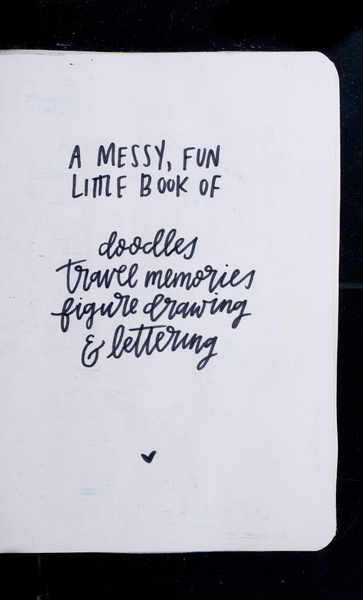 A MESSY, FUN
LITTLE BOOK OF
doodles
travel memories
figure drawing
& lettering